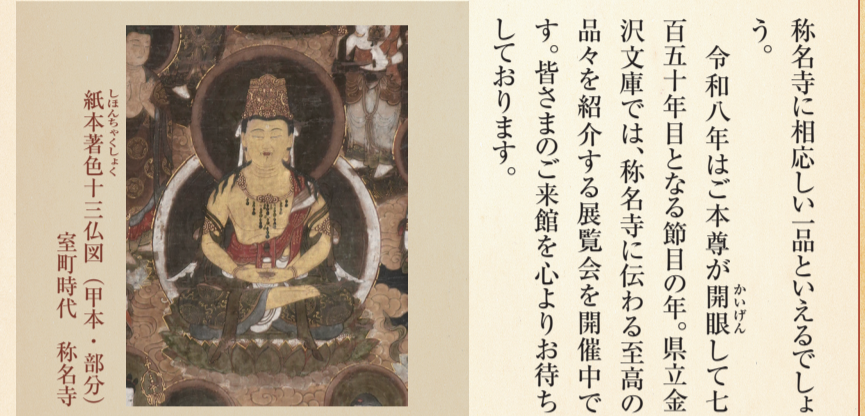 称名寺に相応しい一品といえるでしょ
う。
令和八年はご本尊が開眼して七
かいげん
百五十年目となる節目の年。県立金
沢文庫では、称名寺に伝わる至高の
品々を紹介する展覧会を開催中で
す。皆さまのご来館を心よりお待ち
しております。
しほんちゃくしょく
紙本著色十三仏図（甲本・部分）
室町時代　称名寺